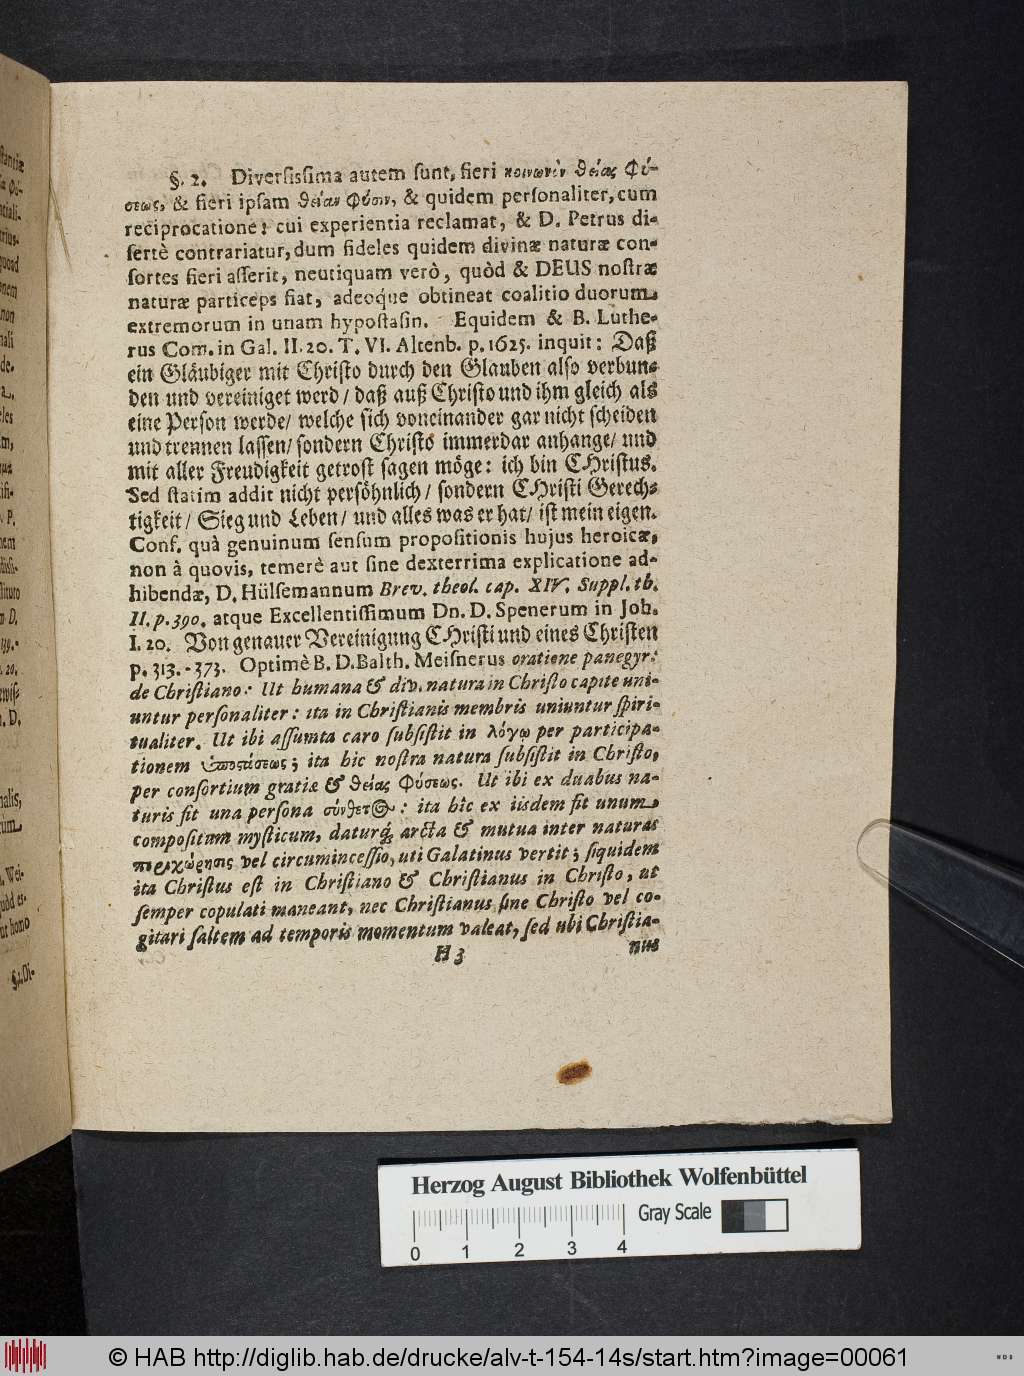 §. 2. Diversissima autem sunt, fieri κοινωνὸν θείας Φύ-
σεως, & fieri ipsam θείαν Φύσιν, & quidem personaliter, cum
reciprocatione: cui experientia reclamat, & D. Petrus di-
sertè contrariatur, dum fideles quidem divinæ naturæ con-
sortes fieri asserit, neutiquam verò, quòd & DEUS nostræ
naturæ particeps fiat, adeoque obtineat coalitio duorum
extremorum in unam hypostasin. Equidem & B. Luthe-
rus Com. in Gal. II. 20. T. VI. Altenb. p. 1625. inquit: Daß
ein Gläubiger mit Christo durch den Glauben also verbun-
den und vereiniget werd / daß auß Christo und ihm gleich als
eine Person werde / welche sich voneinander gar nicht scheiden
und trennen lassen / sondern Christo immerdar anhange / und
mit aller Freudigkeit getrost sagen möge: ich bin CHristus.
Sed statim addit nicht persöhnlich / sondern CHristi Gerech-
tigkeit / Sieg und Leben / und alles was er hat / ist mein eigen.
Conf. quà genuinum sensum propositionis hujus heroicæ,
non à quovis, temerè aut sine dexterrima explicatione ad-
hibendæ, D. Hülsemannum Brev. theol. cap. XIV. Suppl. th.
II. p. 390. atque Excellentissimum Dn. D. Spenerum in Joh.
I. 20. Von genauer Vereinigung CHristi und eines Christen
p. 313. - 373. Optimè B. D. Balth. Meisnerus oratione panegyr.
de Christiano: Ut humana & div. natura in Christo capite uni-
untur personaliter: ita in Christianis membris uniuntur spiri-
tualiter. Ut ibi assumta caro subsistit in λόγῳ per participa-
tionem ὑποστάσεως; ita hic nostra natura subsistit in Christo,
per consortium gratiæ & θείας Φύσεως. Ut ibi ex duabus na-
turis fit una persona σύνθετος: ita hic ex iisdem fit unum
compositum mysticum, daturq́; arcta & mutua inter naturas
περιχώρησις vel circumincessio, uti Galatinus vertit; siquidem
ita Christus est in Christiano & Christianus in Christo, ut
semper copulati maneant, nec Christianus sine Christo vel co-
gitari saltem ad temporis momentum valeat, sed ubi Christia-
H 3 nus
§. 2. Di-
Herzog August Bibliothek Wolfenbüttel
Gray Scale
0 1 2 3 4
© HAB http://diglib.hab.de/drucke/alv-t-154-14s/start.htm?image=00061